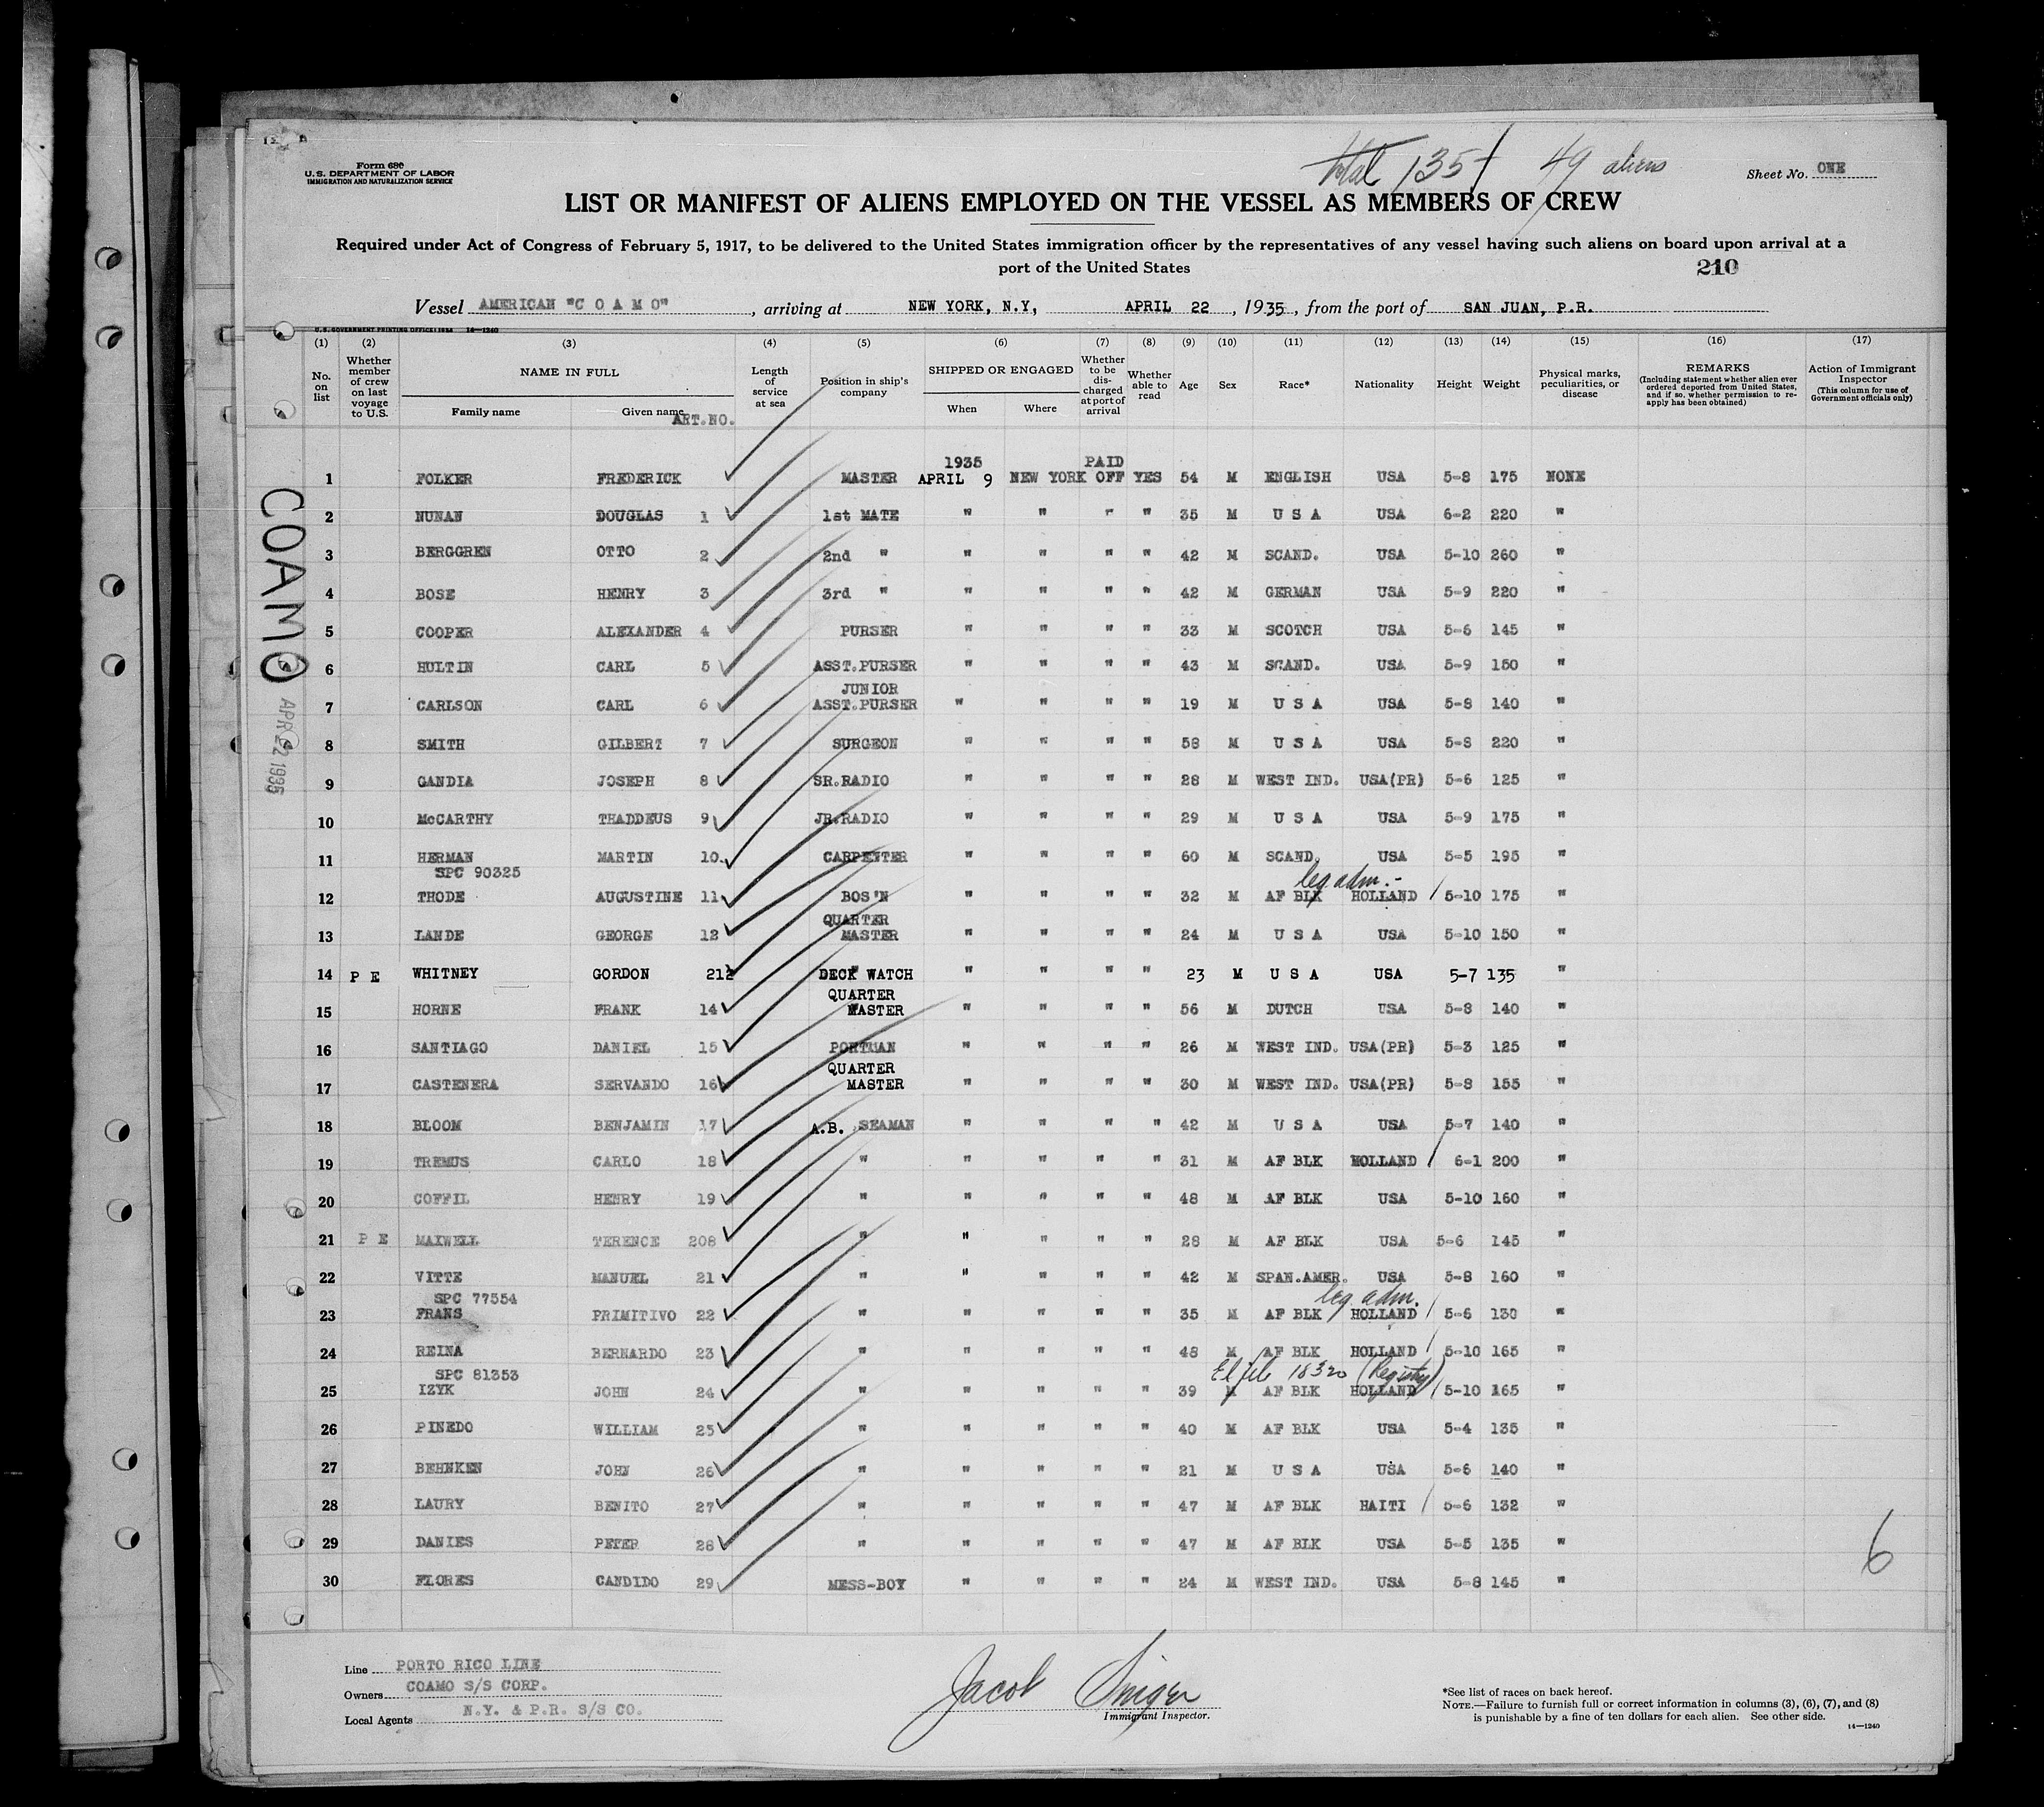 total 135 49 aliens
Form 680
U. S. DEPARTMENT OF LABOR
IMMIGRATION AND NATURALIZATION SERVICE
Sheet No. ONE
LIST OR MANIFEST OF ALIENS EMPLOYED ON THE VESSEL AS MEMBERS OF CREW
Required under Act of Congress of February 5, 1917, to be delivered to the United States immigration officer by the representatives of any vessel having such aliens on board upon arrival at a
port of the United States
210
Vessel AMERICAN "C O A M O", arriving at NEW YORK, N.Y, APRIL 22, 1935, from the port of SAN JUAN, P.R.
U.S. GOVERNMENT PRINTING OFFICE: 1934 14—1240
(1) (2) (3) (4) (5) (6) (7) (8) (9) (10) (11) (12) (13) (14) (15) (16) (17)
No. on list
Whether member of crew on last voyage to U.S.
NAME IN FULL
Family name
Given name
ART.NO.
Length of service at sea
Position in ship's company
SHIPPED OR ENGAGED
When
Where
Whether to be discharged at port of arrival
Whether able to read
Age
Sex
Race*
Nationality
Height
Weight
Physical marks, peculiarities, or disease
REMARKS
(Including statement whether alien ever ordered deported from United States, and if so, whether permission to reapply has been obtained)
Action of Immigrant Inspector
(This column for use of Government officials only)
1935 PAID
1 FOLKER FREDERICK MASTER APRIL 9 NEW YORK OFF YES 54 M ENGLISH USA 5-8 175 NONE
2 NUNAN DOUGLAS 1 1st MATE " " " " 35 M U S A USA 6-2 220 "
3 BERGGREN OTTO 2 2nd " " " " " 42 M SCAND. USA 5-10 260 "
4 BOSE HENRY 3 3rd " " " " " 42 M GERMAN USA 5-9 220 "
5 COOPER ALEXANDER 4 PURSER " " " " 33 M SCOTCH USA 5-6 145 "
6 HULTIN CARL 5 ASST.PURSER " " " " 43 M SCAND. USA 5-9 150 "
JUNIOR
7 CARLSON CARL 6 ASST.PURSER " " " " 19 M U S A USA 5-8 140 "
8 SMITH GILBERT 7 SURGEON " " " " 58 M U S A USA 5-8 220 "
9 GANDIA JOSEPH 8 SR.RADIO " " " " 28 M WEST IND. USA(PR) 5-6 125 "
10 McCARTHY THADDEUS 9 JR.RADIO " " " " 29 M U S A USA 5-9 175 "
11 HERMAN MARTIN 10. CARPENTER " " " " 60 M SCAND. USA 5-5 195 "
SPC 90325 leg adm.-
12 THODE AUGUSTINE 11 BOS'N " " " " 32 M AF BLK HOLLAND 5-10 175 "
QUARTER
13 LANDE GEORGE 12 MASTER " " " " 24 M U S A USA 5-10 150 "
14 P E WHITNEY GORDON 212 DECK WATCH " " " " 23 M U S A USA 5-7 135 "
QUARTER
15 HORNE FRANK 14 MASTER " " " " 56 M DUTCH USA 5-8 140 "
16 SANTIAGO DANIEL 15 PORTMAN " " " " 26 M WEST IND. USA(PR) 5-3 125 "
QUARTER
17 CASTENERA SERVANDO 16 MASTER " " " " 30 M WEST IND. USA(PR) 5-8 155 "
18 BLOOM BENJAMIN 17 A.B. SEAMAN " " " " 42 M U S A USA 5-7 140 "
19 TREMUS CARLO 18 " " " " " 31 M AF BLK HOLLAND 6-1 200 "
20 COFFIL HENRY 19 " " " " " 48 M AF BLK USA 5-10 160 "
21 P E MAXWELL TERENCE 208 " " " " " 28 M AF BLK USA 5-6 145 "
22 VITTE MANUEL 21 " " " " " 42 M SPAN.AMER. USA 5-8 160 "
SPC 77554 leg. adm.
23 FRANS PRIMITIVO 22 " " " " " 35 M AF BLK HOLLAND 5-6 130 "
24 REINA BERNARDO 23 " " " " " 48 M AF BLK HOLLAND 5-10 165 "
SPC 81353 (Registry)
25 IZYK JOHN 24 " " " " " 39 M AF BLK HOLLAND 5-10 165 "
26 PINEDO WILLIAM 25 " " " " " 40 M AF BLK USA 5-4 135 "
27 BEHNKEN JOHN 26 " " " " " 21 M U S A USA 5-6 140 "
28 LAURY BENITO 27 " " " " " 47 M AF BLK HAITI 5-6 132 "
29 DANIES PETER 28 " " " " " 47 M AF BLK USA 5-5 135 "
30 FLORES CANDIDO 29 MESS-BOY " " " " 24 M WEST IND. USA 5-8 145 "
6
COAMO
APR 22 1935
Line PORTO RICO LINE
Owners COAMO S/S CORP.
Local Agents N.Y. & P.R. S/S CO.
Jacob Singer
Immigrant Inspector.
*See list of races on back hereof.
NOTE.—Failure to furnish full or correct information in columns (3), (6), (7), and (8)
is punishable by a fine of ten dollars for each alien. See other side.
14—1240